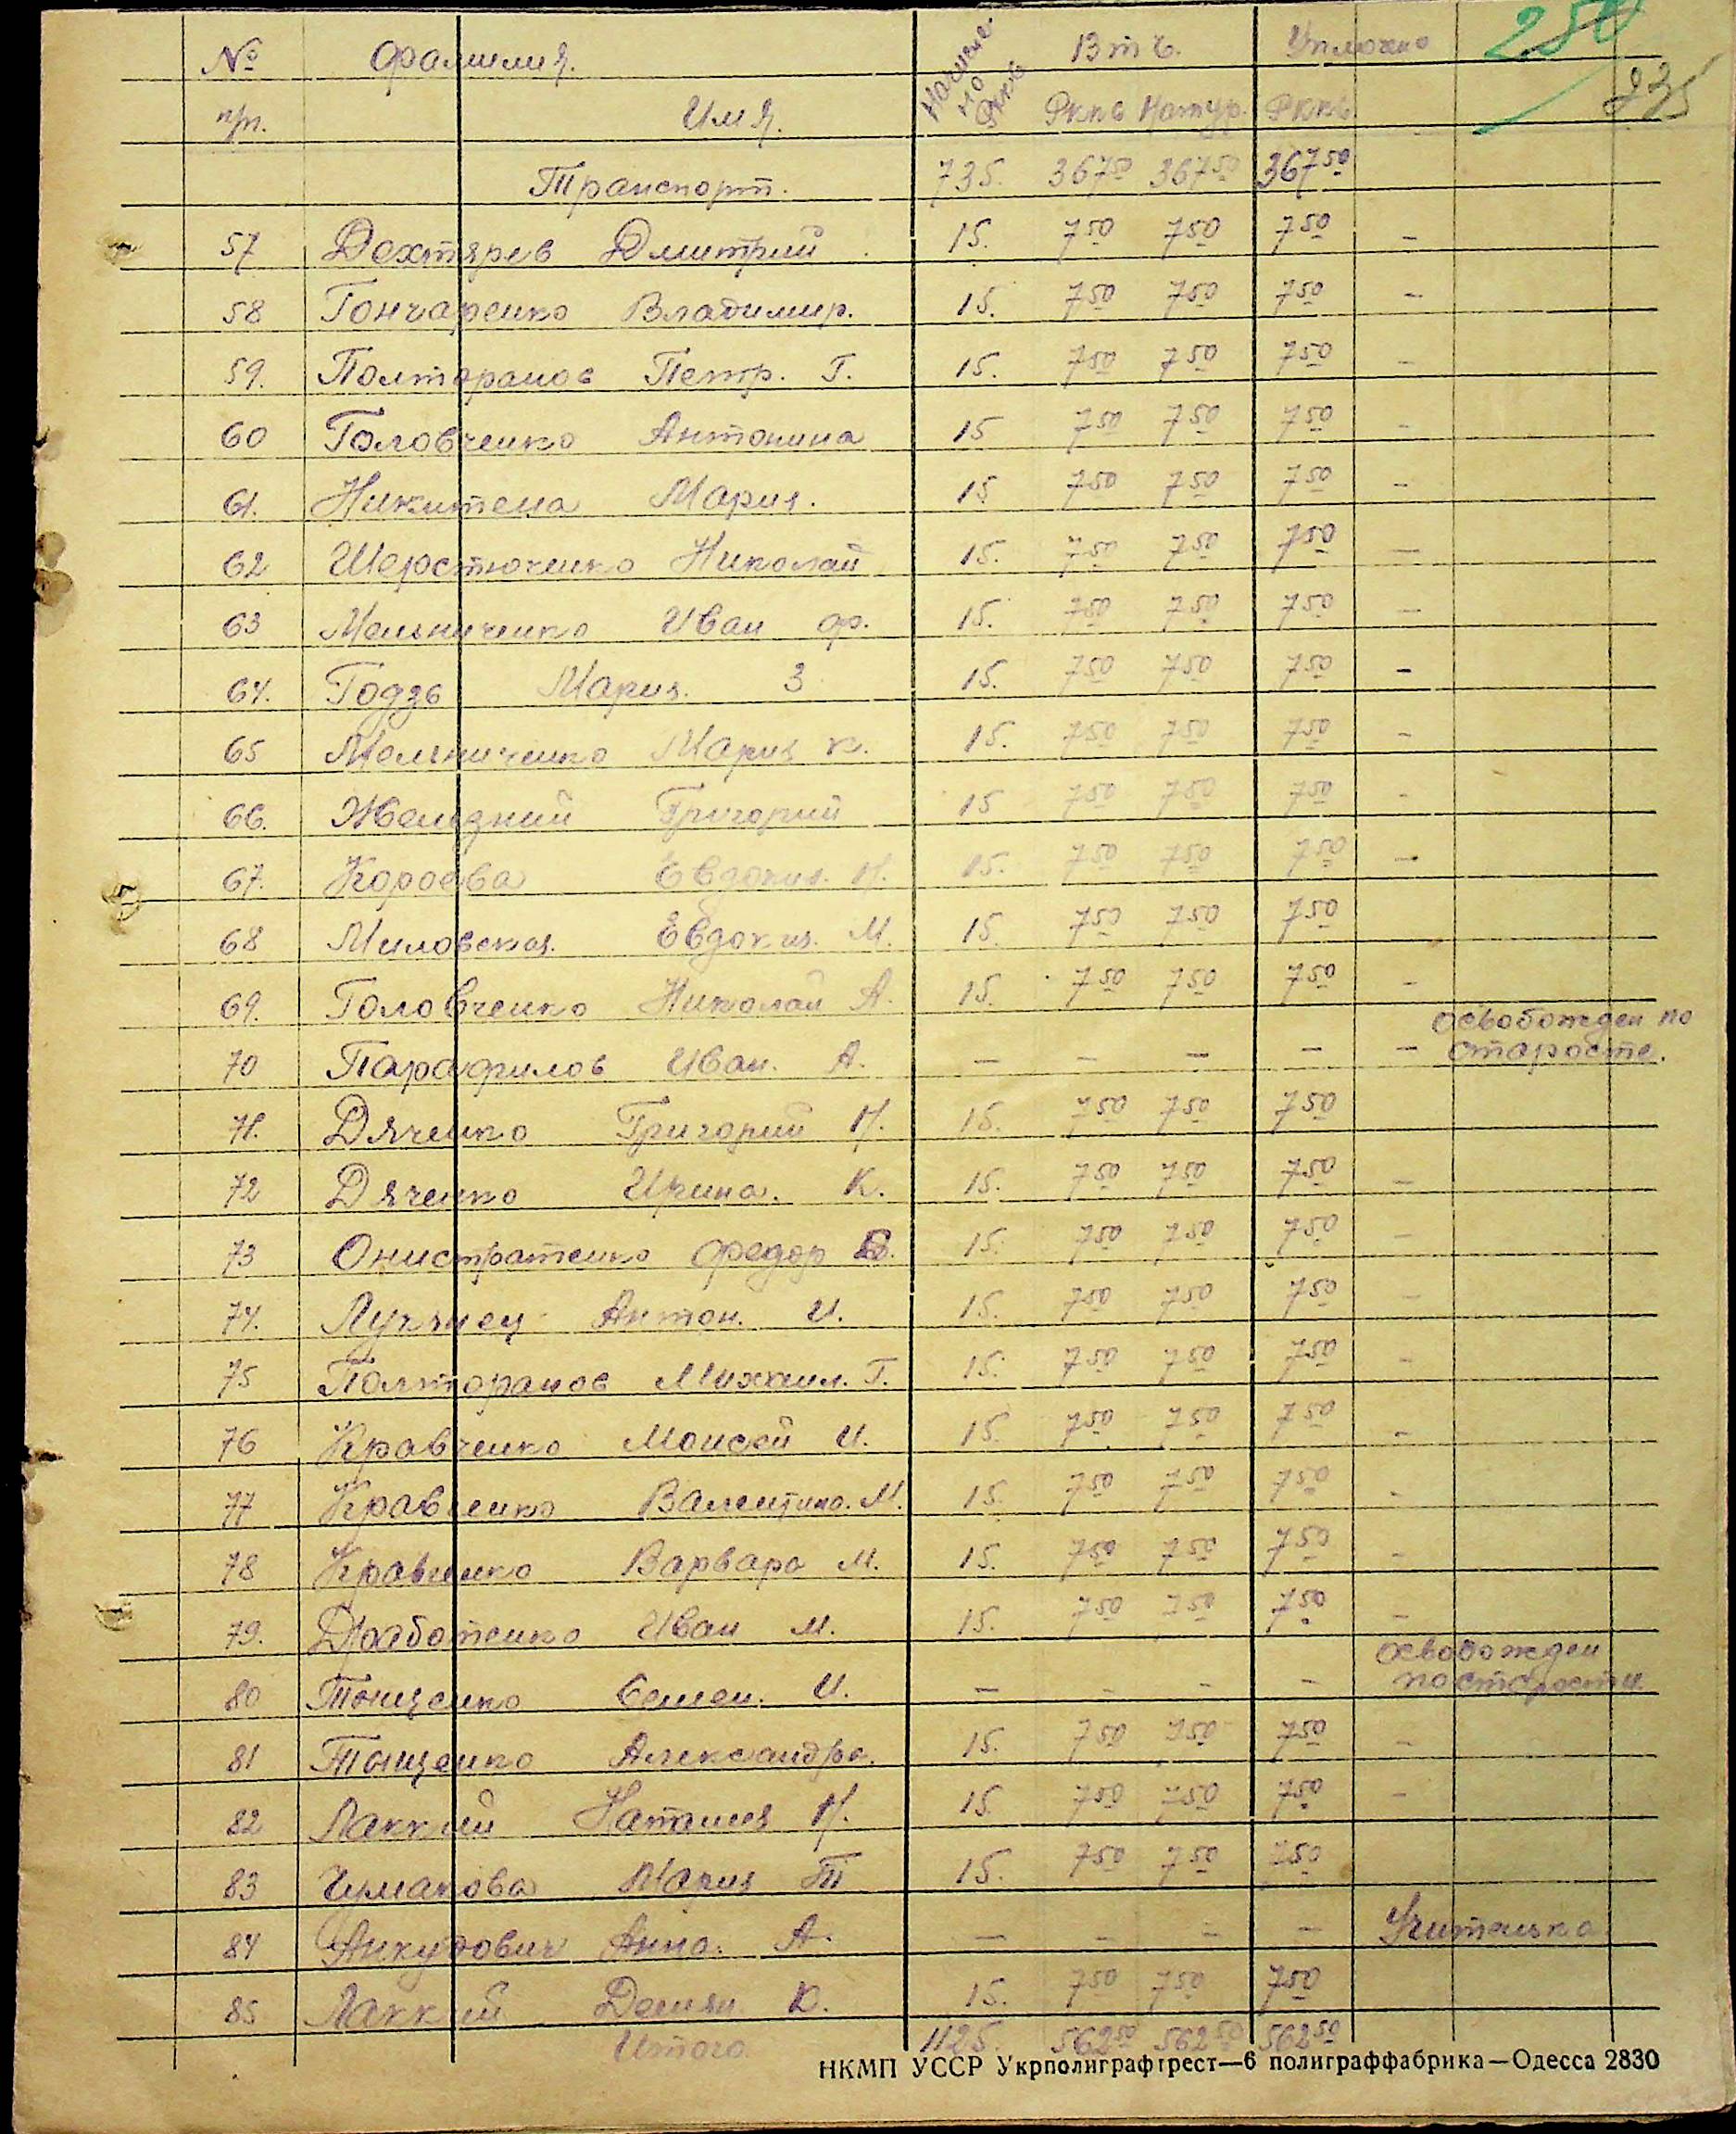 № Фамилия. В т ч. Уплочено 250
п/п. Имя. Начисле. но Ркпв Ркпв Натур. Ркпв 235
Транспорт. 735. 367 50 367 50 367 50
57 Дехтярев Дмитрий 15. 7 50 7 50 7 50 -
58 Гончаренко Владимир. 15. 7 50 7 50 7 50 -
59. Полторанов Петр. Г. 15. 7 50 7 50 7 50 -
60 Головченко Антонина 15 7 50 7 50 7 50 -
61. Никитена Мария. 15 7 50 7 50 7 50 -
62 Шерстюченко Николай 15. 7 50 7 50 7 50 -
63 Мельниченко Иван Ф. 15. 7 50 7 50 7 50 -
64. Годзь Мария. З 15. 7 50 7 50 7 50 -
65 Мельниченко Мария К. 15. 7 50 7 50 7 50 -
66. Железний Григорий 15 7 50 7 50 7 50 -
67. Короева Евдокия. Н. 15. 7 50 7 50 7 50 -
68 Миловская. Евдокия. М. 15. 7 50 7 50 7 50
69. Головченко Николай А. 15. 7 50 7 50 7 50 -
освобожден по
70 Парафилов Иван. А. - - - - - старосте.
71. Дяченко Григорий Н. 15. 7 50 7 50 7 50
72 Дяченко Ирина. К. 15. 7 50 7 50 7 50 -
73 Онистратенко Федор 15. 7 50 7 50 7 50 -
74. Лучянец Антон. И. 15. 7 50 7 50 7 50 -
75 Полторанов Михаил. Г. 15. 7 50 7 50 7 50 -
76 Кравченко Моисей И. 15. 7 50 7 50 7 50 -
77 Кравченко Валентина. М. 15. 7 50 7 50 7 50 -
78 Кравченко Варвара М. 15. 7 50 7 50 7 50 -
79. Дработенко Иван М. 15. 7 50 7 50 7 50 -
освобожден
80 Тонщенко Семен. И. - - - - по старости.
81 Тонщенко Александра. 15. 7 50 7 50 7 50 -
82 Лаккий Наталия Н. 15. 7 50 7 50 7 50 -
83 Чумакова Мария Т 15. 7 50 7 50 7 50
84 Анкудович Анна. А. - - - - Учителька
85 Лаккий Демян. К. 15. 7 50 7 50 7 50
Итого 1125. 562 50 562 50 562 50
НКМП УССР Укрполиграфтрест—6 полиграффабрика—Одесса 2830